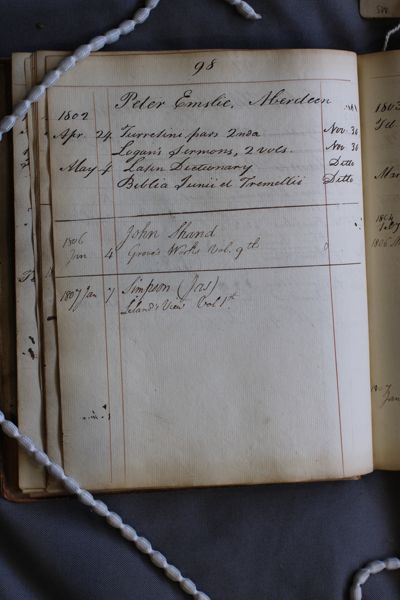 98
Peter Emslie, Aberdeen
1802
Apr. 24 Turretini pars 2nda Nov. 30
Logan's Sermons, 2 vols. Nov 30
May 4 Latin Dictionary Ditto
Biblia Junii et Tremellii Ditto
1806 John Shand
Jun 4 Grove's Works Vol. 9th
1807 Jan 7 Simpson (Jas)
Leland's View Vol 1st
1803
Feb
Mar
1804
1806
1807
Jan